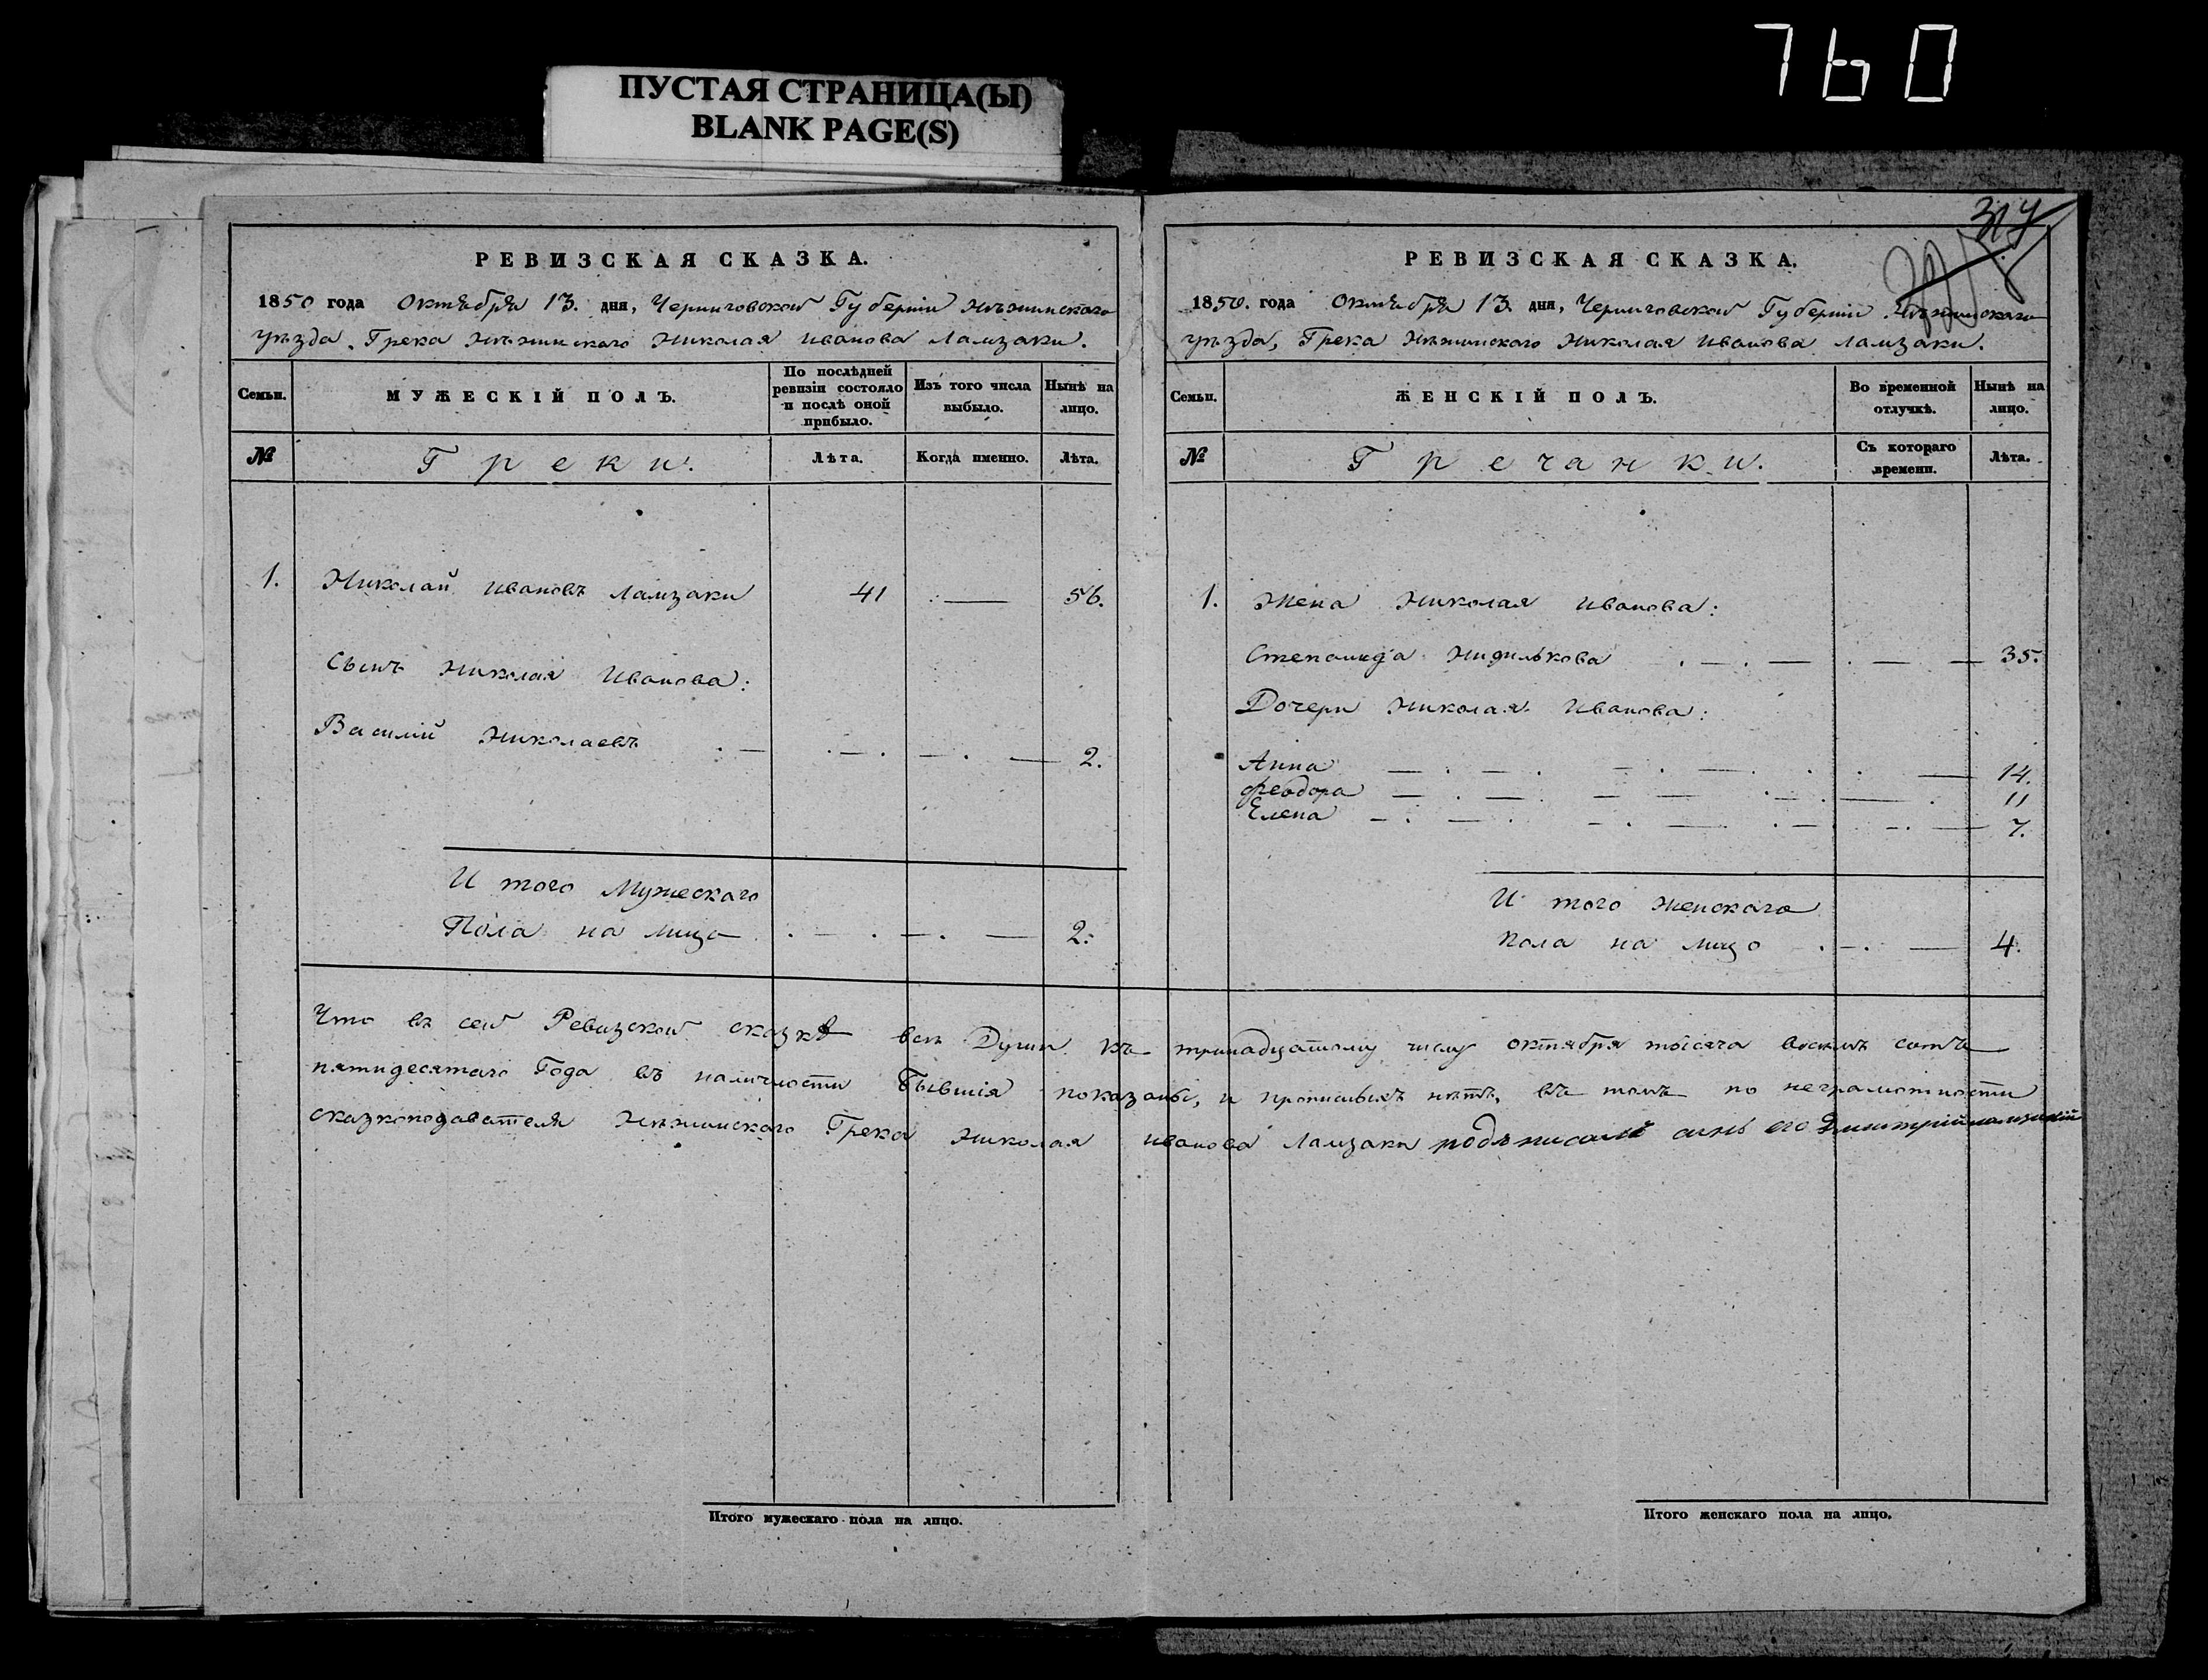 760
ПУСТАЯ СТРАНИЦА(Ы)
BLANK PAGE(S)
РЕВИЗСКАЯ СКАЗКА.
1850 года Октября 13. дня, Черниговской Губерніи Нѣжинскаго
уѣзда, Грека Нѣжинскаго Николая Иванова Ламзаки.
Семьи.
МУЖЕСКІЙ ПОЛЪ.
По послѣдней ревизіи состояло и послѣ оной прибыло.
Изъ того числа выбыло.
Нынѣ на лицо.
№
Греки.
Лѣта.
Когда именно.
Лѣта.
1. Николай Ивановъ Ламзаки 41 — 56.
Сынъ Николая Иванова:
Василій Николаевъ 2.
И того Мужескаго
Пола на лицо 2.
317
РЕВИЗСКАЯ СКАЗКА.
1850. года Октября 13. дня, Черниговской Губерніи Нѣжинскаго
уѣзда, Грека Нѣжинскаго Николая Иванова Ламзаки.
Семьи.
ЖЕНСКІЙ ПОЛЪ.
Во временной отлучкѣ.
Нынѣ на лицо.
№
Гречанки.
Съ котораго времени.
Лѣта.
1. Жена Николая Иванова:
Степанида 35.
Дочери Николая Иванова:
Анна 14.
Феодора 11
Елена 7.
И того женскаго
пола на лицо 4.
Что въ сей Ревизской сказкѣ всѣ Души къ тринадцатому числу октября тысяча восемь сотъ
пятидесятаго Года въ наличности бывшія показаны, и прописныхъ нѣтъ, въ томъ по неграмотности
сказкоподавателя Нѣжинскаго Грека Николая Иванова Ламзаки подъписалъ синъ его Дмитрій
Итого мужескаго пола на лицо.
Итого женскаго пола на лицо.